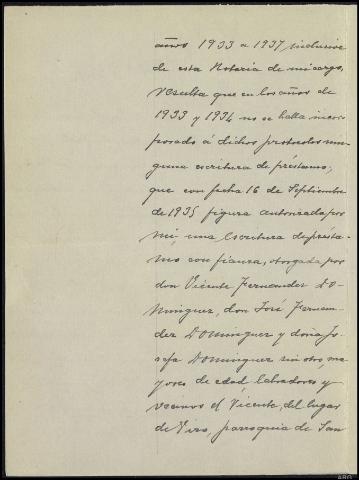 años 1933 a 1937, inclusive
de esta Notaria de mi cargo,
resulta que en los años de
1933 y 1934 no se halla incor-
porado á dichos protocolos nin-
guna escritura de préstamo;
que con fecha 16 de Septiembre
de 1935 figura autorizada por
mi, una Escritura de présta-
mo con fianza, otorgada por
don Vicente Fernandez Do-
minguez, don José Fernan-
dez Dominguez y doña Jo-
sefa Dominguez sin otro, ma-
yores de edad, labradores y
vecinos el Vicente, del lugar
de Viro, parroquia de San